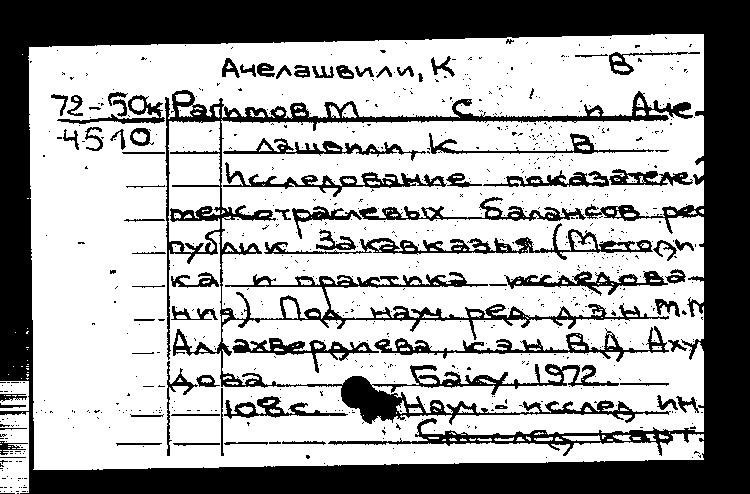 Ачелашвили, К В
72-50к Рагимов, М С и Аче-
4510 лашвили, К В
Исследование показателей
межотраслевых балансов рес
публик Закавказья (Методи-
ка и практика исследова-
ния). Под науч. ред. д.э.н. М.М
Аллахвердиева, к.э.н. В.Д. Аху
дова. Баку, 1972.
108с. Науч.- исслед ин-
См. след. карт.